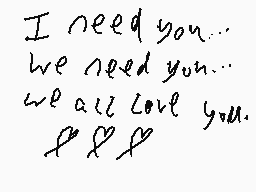 I need you...
We need you...
we all love you.